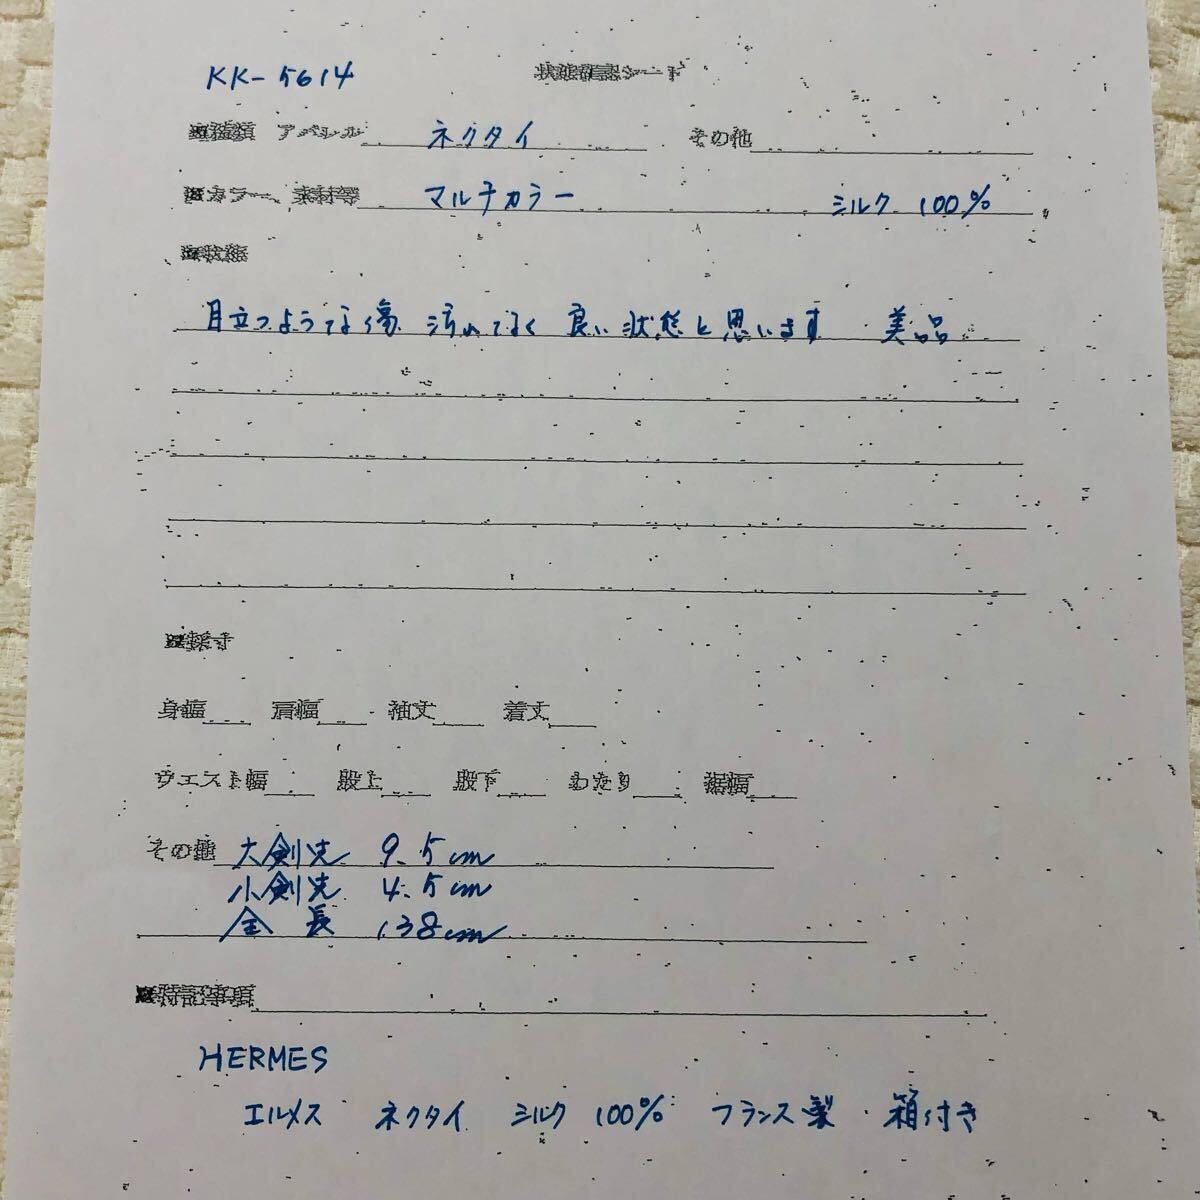 KK-5614 状態確認シート
■種類 アパレル ネクタイ その他
■カラー、素材等 マルチカラー シルク 100%
■状態
目立つような傷 汚れなく 良い状態と思います 美品
■採寸
身幅 肩幅 袖丈 着丈
ウエスト幅 股上 股下 わたり 裾幅
その他 大剣先 9.5cm
小剣先 4.5cm
全長 138cm
■特記事項
HERMES
エルメス ネクタイ シルク 100% フランス製 箱付き